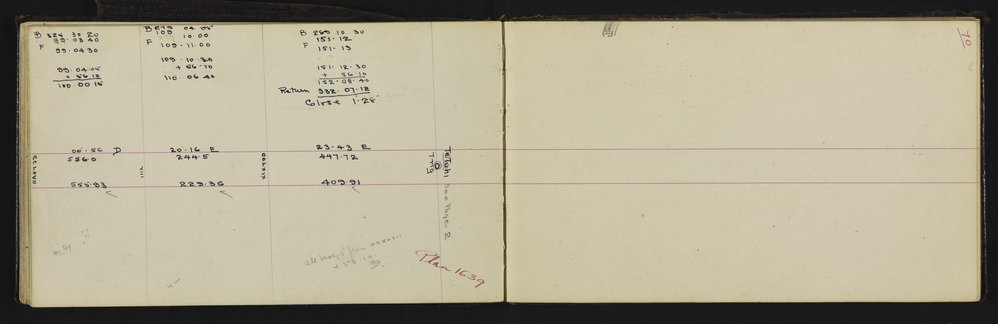 B 328 30 20
99.03 40
F 99.04 30
99.04.05
+ 56.10
100 00 15
00.56 D
5560
555.93
CCLXVII
B 04 05
109 10.00
F 109.11.00
109.10.30
+ 56.10
110.06 40
20.16 E
244.5
229.36
VIII
B 289 10 30
151.12
F 151.13
151.12.30
+ 56.10
152.08.40
Return 332.07.12
Co/rse 1.28
23.43 E
447.72
409.91
Trig
See Page 2
all
+ 56 10
Plan 1639
70